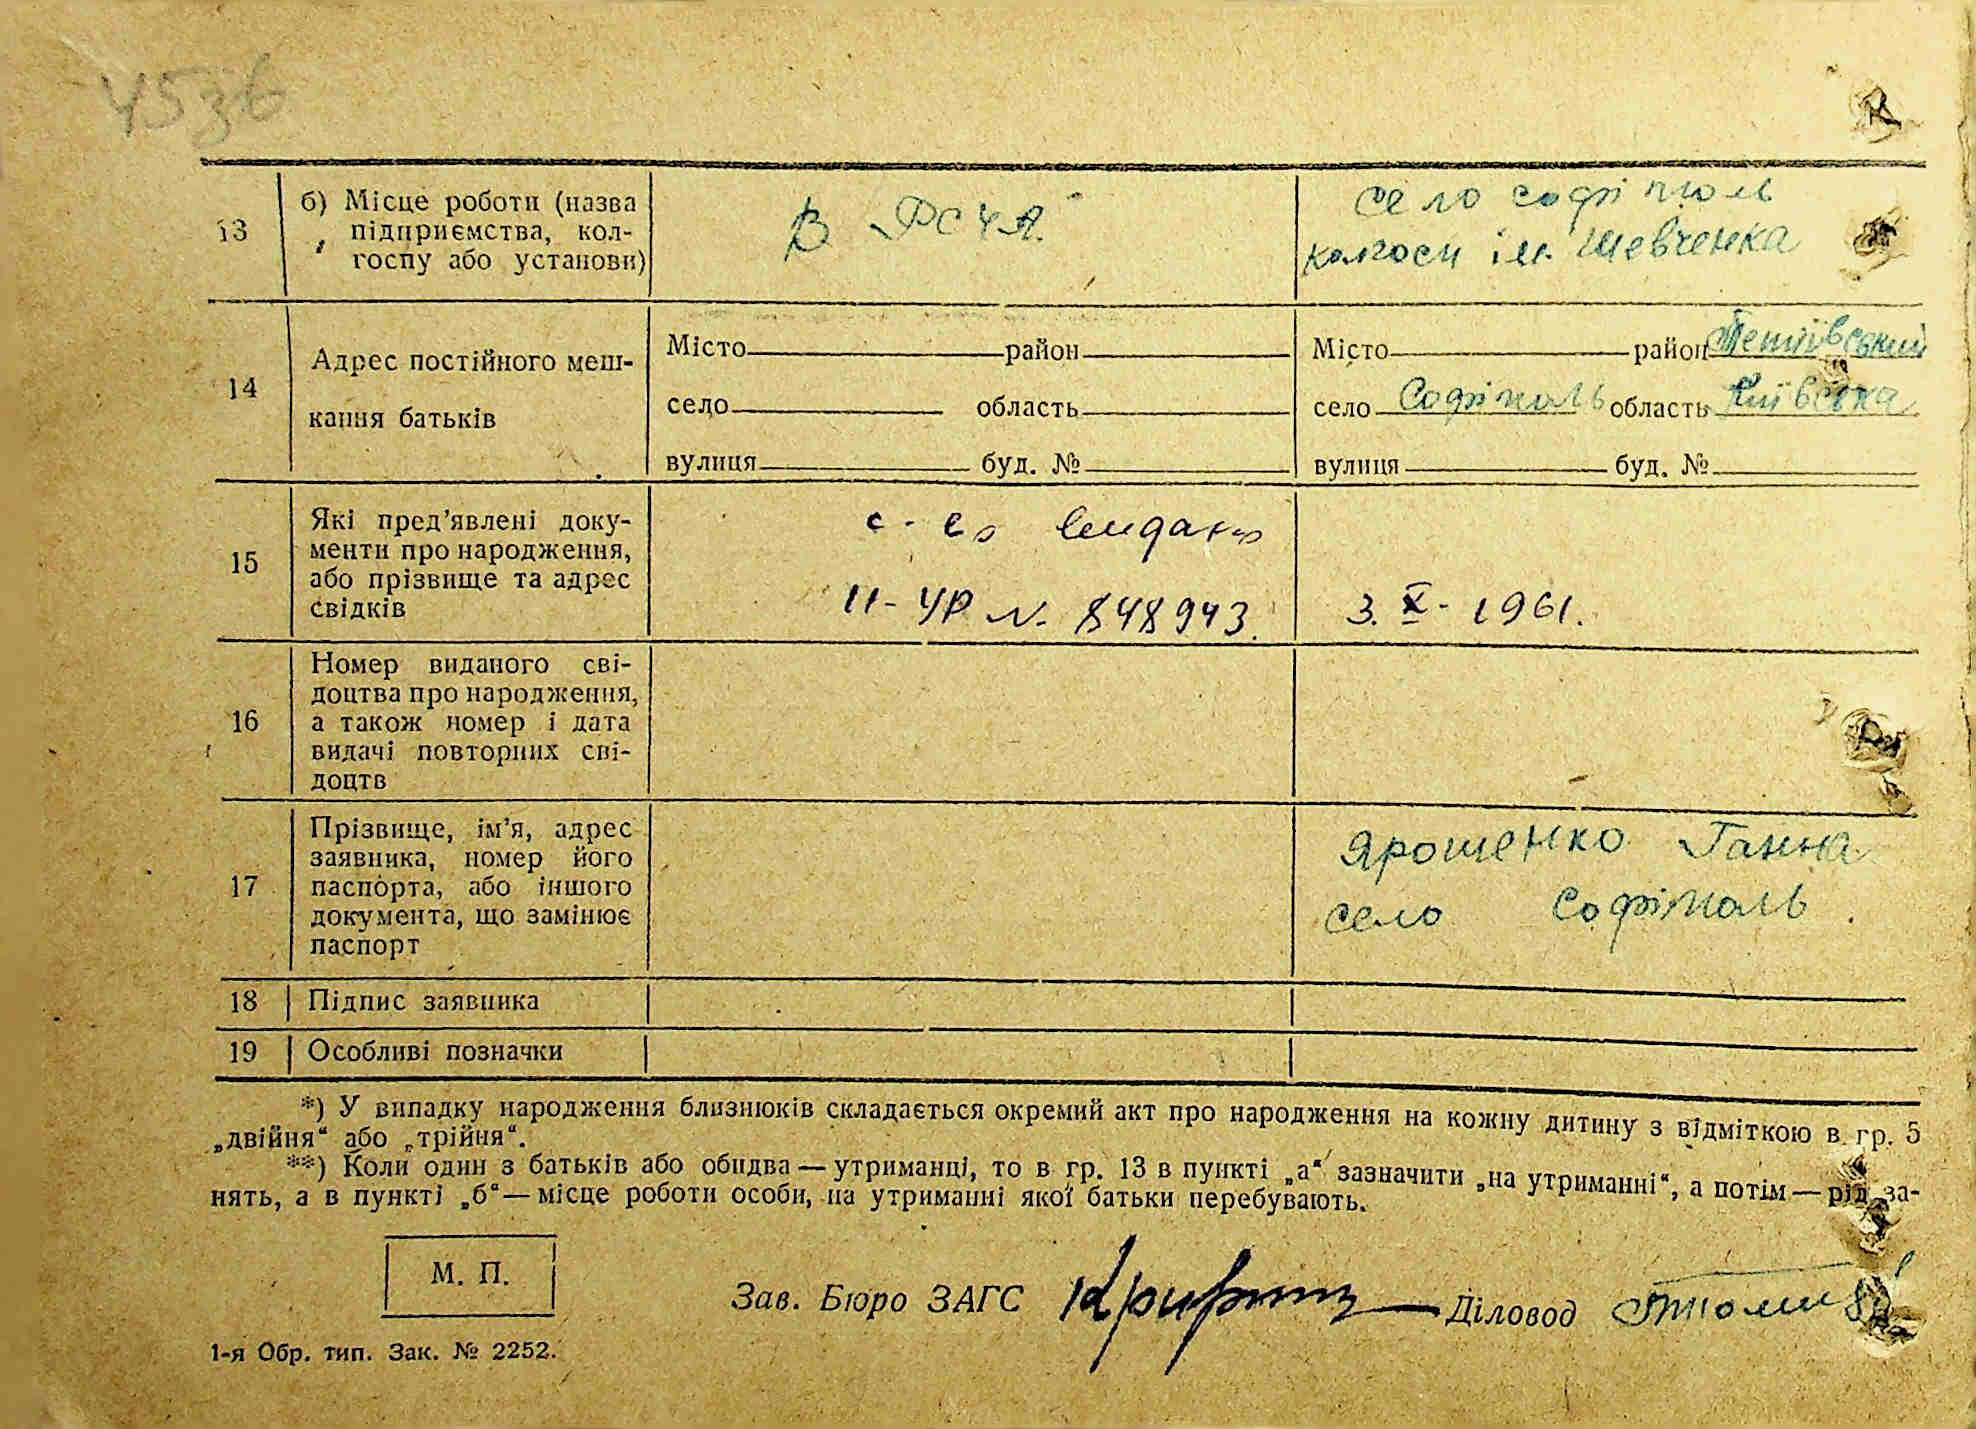 45зв
13
б) Місце роботи (назва
підприємства, кол-
госпу або установи)
В РСЧА.
село софіполь
колгосп ім. Шевченка
14
Адрес постійного меш-
кання батьків
Місто район
село область
вулиця буд. №
Місто район Тетіївський
село Софіполь область Київська
вулиця буд. №
15
Які пред’явлені доку-
менти про народження,
або прізвище та адрес
свідків
с-во видано
II-УР N. 848943. 3. X- 1961.
16
Номер виданого сві-
доцтва про народження,
а також номер і дата
видачі повторних сві-
доцтв
17
Прізвище, ім’я, адрес
заявника, номер його
паспорта, або іншого
документа, що замінює
паспорт
Ярошенко Ганна
село Софіполь.
18 Підпис заявника
19 Особливі позначки
*) У випадку народження близнюків складається окремий акт про народження на кожну дитину з відміткою в гр. 5
„двійня“ або „трійня“.
**) Коли один з батьків або обидва — утриманці, то в гр. 13 в пункті „а“ зазначити „на утриманні“, а потім — рід за-
нять, а в пункті „б“ — місце роботи особи, на утриманні якої батьки перебувають.
М. П.
Зав. Бюро ЗАГС Діловод
1-я Обр. тип. Зак. № 2252.